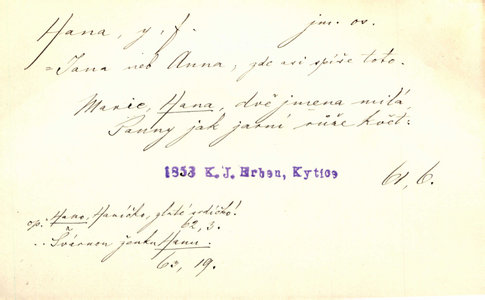 Hana, y, f. jm. os.
= Jana neb Anna, zde asi spíše toto.
Marie, Hana, dvě jmena milá,
Panny jak jarní růže květ:
1853 K. J. Erben, Kytice
61, 6.
op: Hano, Haničko, zlaté srdéčko!
62, 3.
.. Švárnou ženku Hanu.
63, 19.